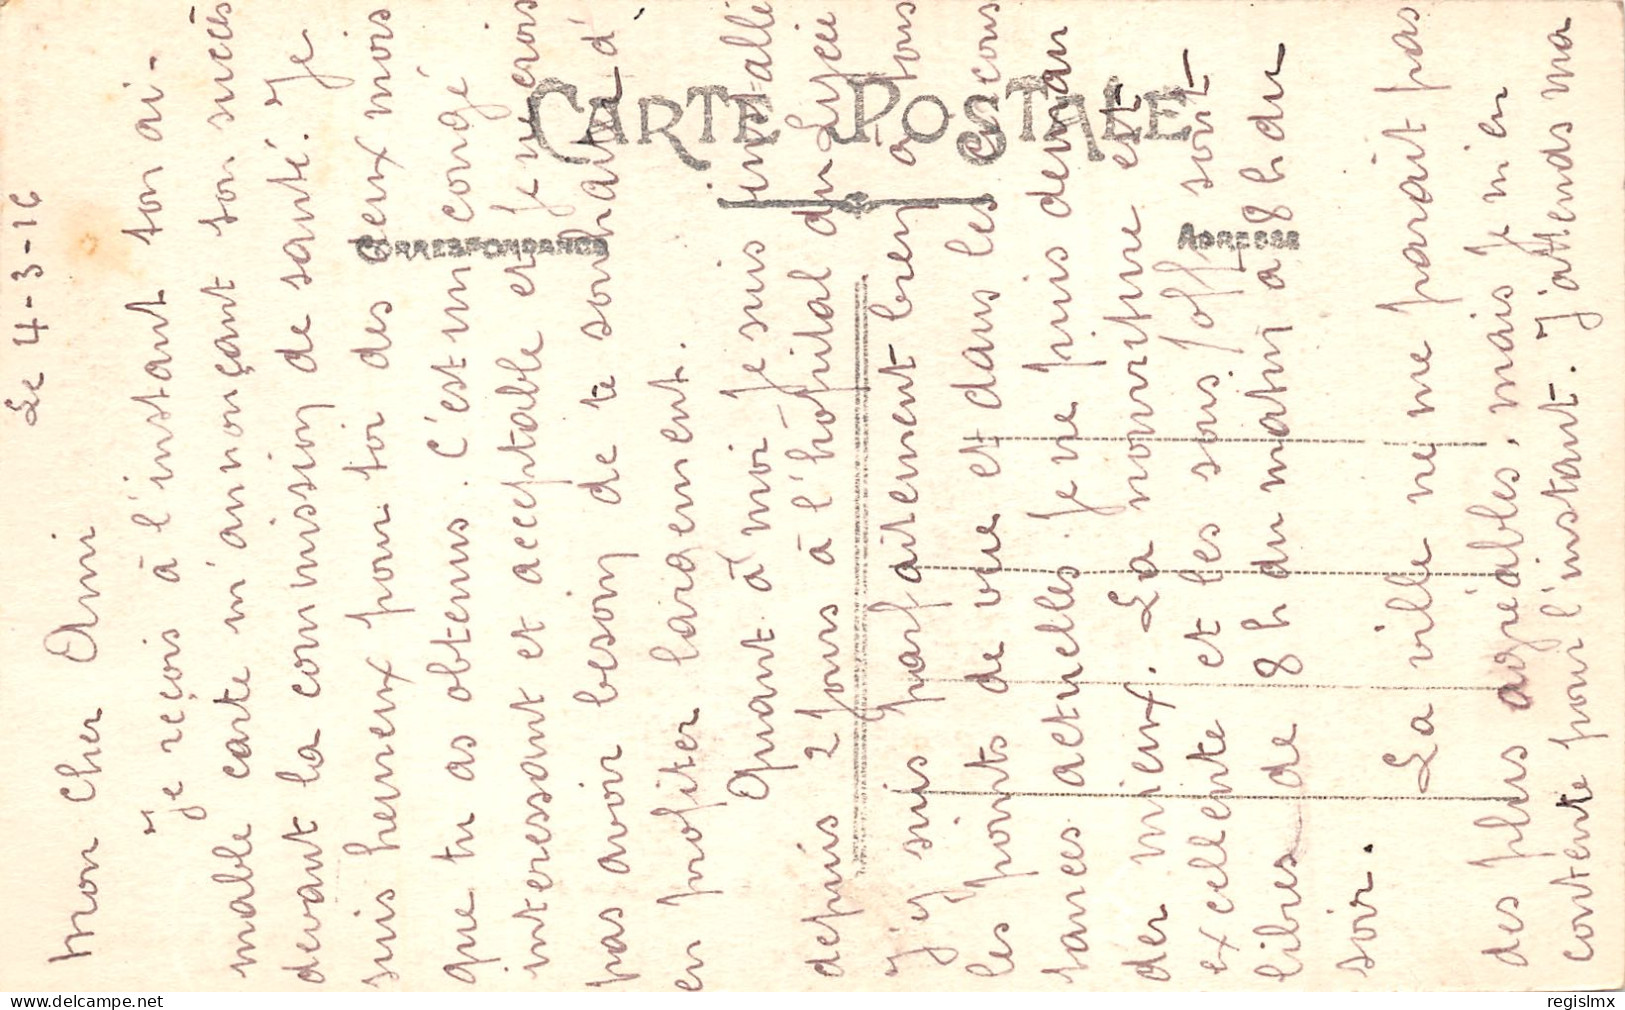 Le 4-3-16
Mon Cher Ami
Je reçois à l'instant ton ai-
mable carte m'annonçant ton succès
devant la commission de santé. Je
suis heureux pour toi des deux mois
que tu as obtenus. C'est un congé
interessant et acceptable et je ne crois
pas avoir besoin de te souhaiter d'
en profiter largement.
Quant à moi je suis installé
depuis 2 jours à l'hôpital du Lycée
J'y suis parfaitement bien à tous
les points de vue et dans les circons
tances actuelles je ne puis deman
der mieux. La nourriture est
excellente et les sous/off. sont
libres de 8h du matin à 8h du
soir.
La ville ne me parait pas
des plus agréables, mais je m'en
contente pour l'instant. J'attends ma
CARTE POSTALE
CORRESPONDANCE
ADRESSE
regislmx